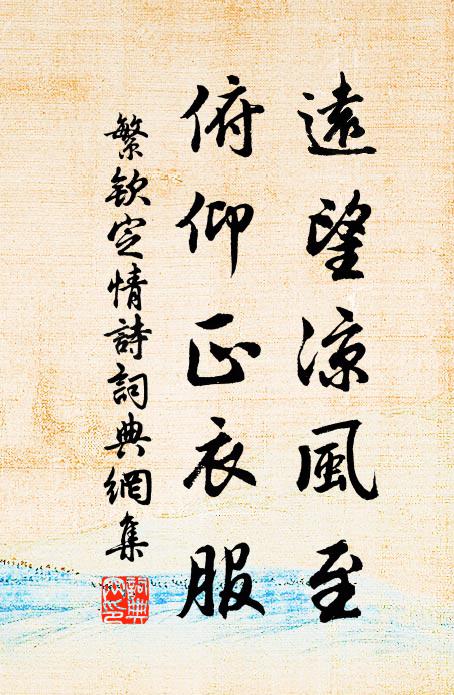 遠望凉風至
俯仰正衣服
繁欽定情詩詞典網集